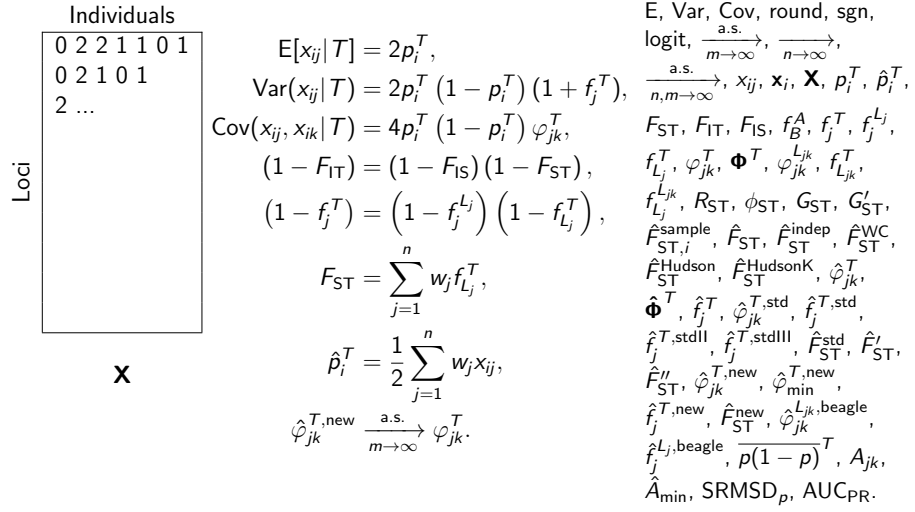 Individuals
0 2 2 1 1 0 1
0 2 1 0 1
2 ...
Loci
X
E[x_{ij}|T] = 2p_i^T,
Var(x_{ij}|T) = 2p_i^T (1 − p_i^T) (1 + f_j^T),
Cov(x_{ij}, x_{ik}|T) = 4p_i^T (1 − p_i^T) φ_{jk}^T,
(1 − F_{IT}) = (1 − F_{IS}) (1 − F_{ST}),
(1 − f_j^T) = (1 − f_j^{L_j}) (1 − f_{L_j}^T),
F_{ST} = \sum_{j=1}^{n} w_j f_{L_j}^T,
\hat{p}_i^T = \frac{1}{2} \sum_{j=1}^{n} w_j x_{ij},
\hat{φ}_{jk}^{T,new} \xrightarrow[m→∞]{a.s.} φ_{jk}^T.
E, Var, Cov, round, sgn,
logit, \xrightarrow[m→∞]{a.s.}, \xrightarrow[n→∞]{},
\xrightarrow[n,m→∞]{a.s.}, x_{ij}, \mathbf{x}_i, \mathbf{X}, p_i^T, \hat{p}_i^T,
F_{ST}, F_{IT}, F_{IS}, f_B^A, f_j^T, f_j^{L_j},
f_{L_j}^T, φ_{jk}^T, \mathbf{Φ}^T, φ_{jk}^{L_{jk}}, f_{L_{jk}}^T,
f_{L_j}^{L_{jk}}, R_{ST}, ϕ_{ST}, G_{ST}, G'_{ST},
\hat{F}_{ST,i}^{sample}, \hat{F}_{ST}, \hat{F}_{ST}^{indep}, \hat{F}_{ST}^{WC},
\hat{F}_{ST}^{Hudson}, \hat{F}_{ST}^{HudsonK}, \hat{φ}_{jk}^T,
\hat{\mathbf{Φ}}^T, \hat{f}_j^T, \hat{φ}_{jk}^{T,std}, \hat{f}_j^{T,std},
\hat{f}_j^{T,stdII}, \hat{f}_j^{T,stdIII}, \hat{F}_{ST}^{std}, \hat{F}'_{ST},
\hat{F}''_{ST}, \hat{φ}_{jk}^{T,new}, \hat{φ}_{min}^{T,new},
\hat{f}_j^{T,new}, \hat{F}_{ST}^{new}, \hat{φ}_{jk}^{L_{jk},beagle},
\hat{f}_j^{L_j,beagle}, \overline{p(1 − p)}^T, A_{jk},
\hat{A}_{min}, SRMSD_p, AUC_{PR}.